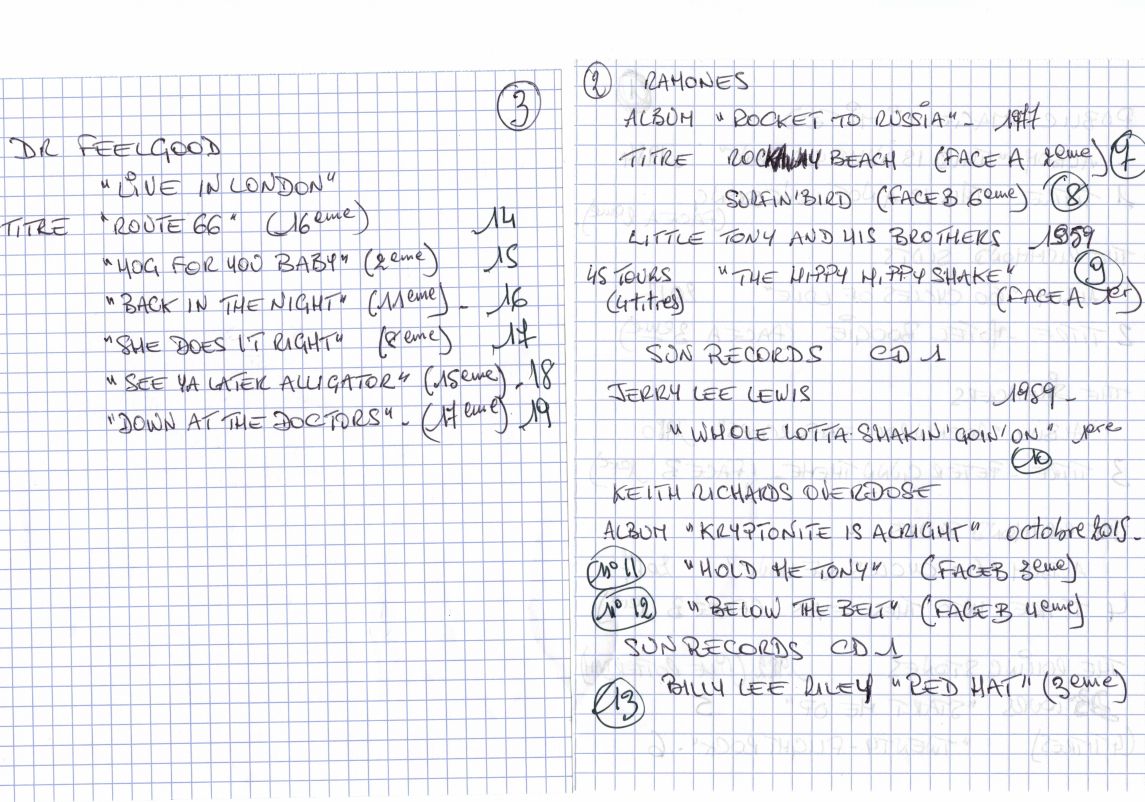 3
DR FEELGOOD
"LIVE IN LONDON"
TITRE "ROUTE 66" (16eme) 14
"HOG FOR YOU BABY" (2eme) 15
"BACK IN THE NIGHT" (11eme) - 16
"SHE DOES IT RIGHT" (8eme) 17
"SEE YA LATER ALLIGATOR" (15eme) - 18
"DOWN AT THE DOCTORS" - (17eme) - 19
2 RAMONES
ALBUM "ROCKET TO RUSSIA" - 1977
TITRE ROCKAWAY BEACH (FACE A 2eme) 7
SURFIN'BIRD (FACE B 6eme) 8
LITTLE TONY AND HIS BROTHERS 1959
45 TOURS "THE HIPPY HIPPY SHAKE" 9
(4 titres) (FACE A 1er)
SUN RECORDS CD 1
JERRY LEE LEWIS 1989 -
"WHOLE LOTTA SHAKIN' GOIN' ON" 1ere
10
KEITH RICHARDS OVERDOSE
ALBUM "KRYPTONITE IS ALRIGHT" octobre 2015 -
n° 11 "HOLD ME TONY" (FACE B 3eme)
n° 12 "BELOW THE BELT" (FACE B 4eme)
SUN RECORDS CD 1
13 BILLY LEE RILEY "RED HAT" (3eme)